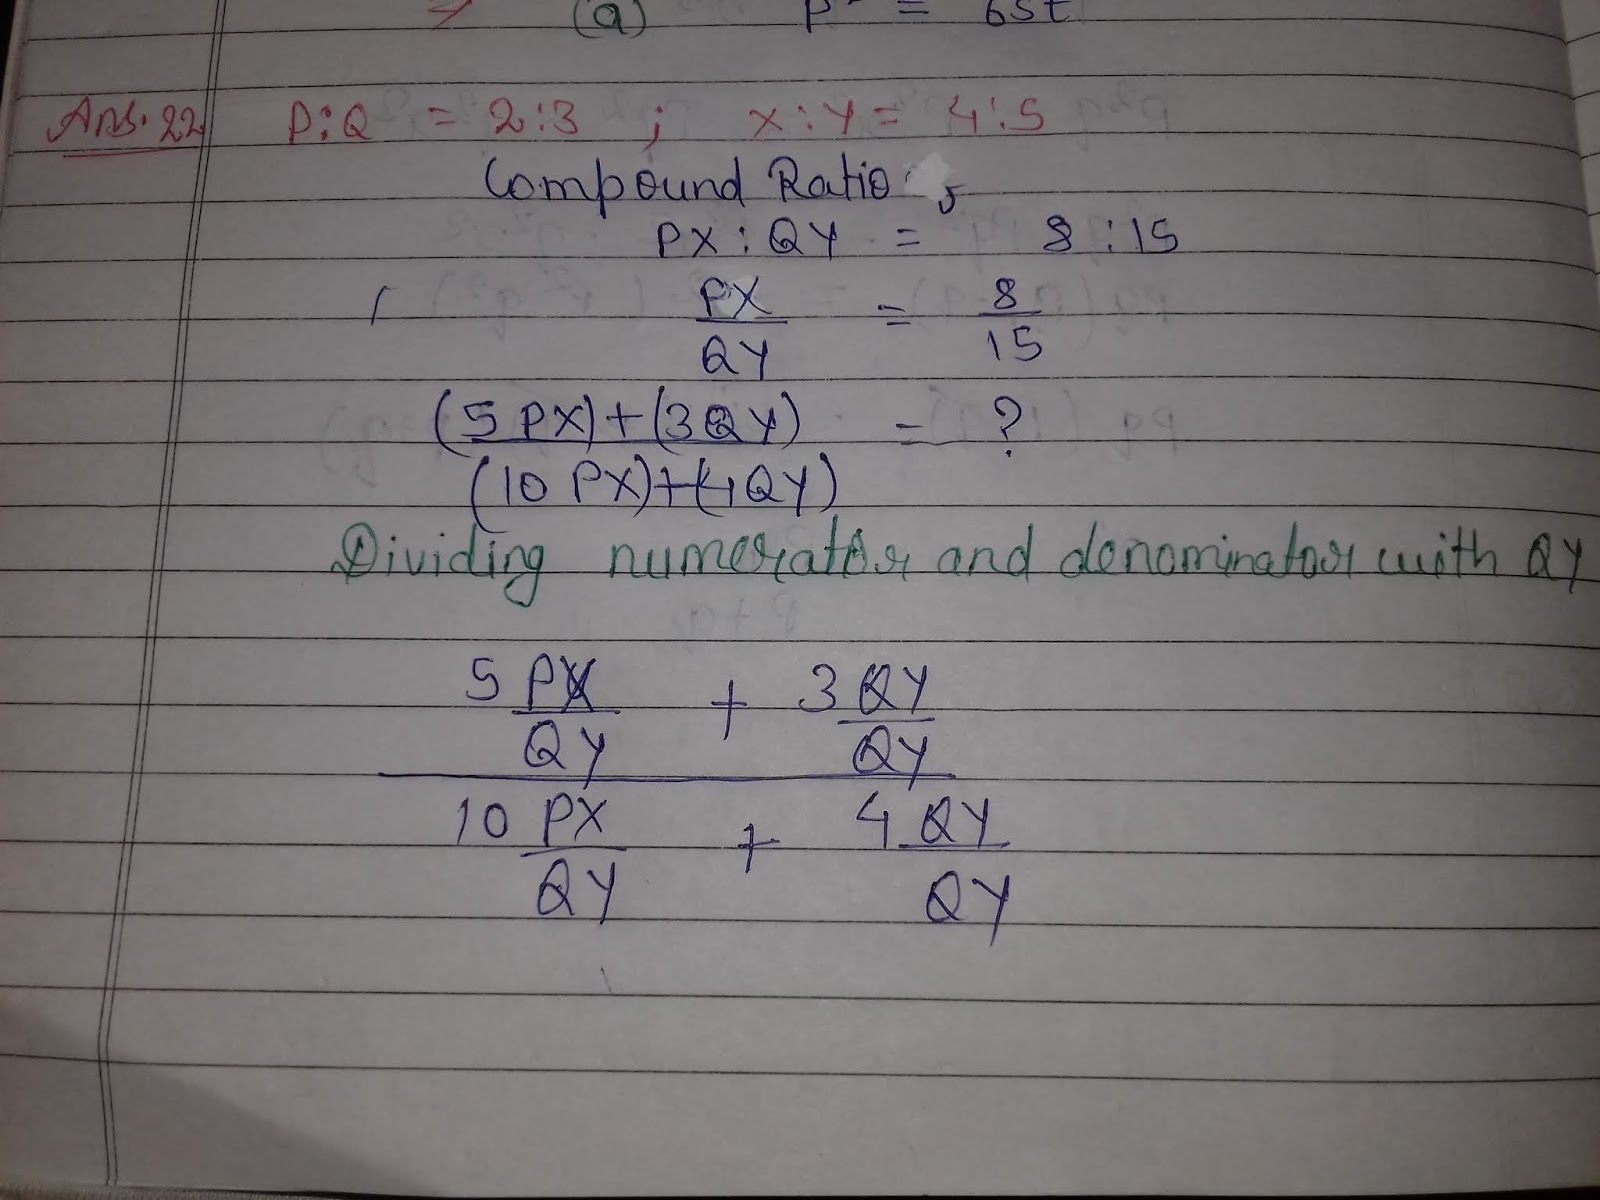 (a) p = 6st
Ans. 22 P:Q = 2:3 ; X:Y = 4:5
Compound Ratio,
PX : QY = 8 : 15
PX = 8
QY 15
(5 PX)+(3QY) = ?
(10 PX)+(4QY)
Dividing numerator and denominator with QY
5 PX + 3 QY
QY QY
10 PX + 4 QY
QY QY